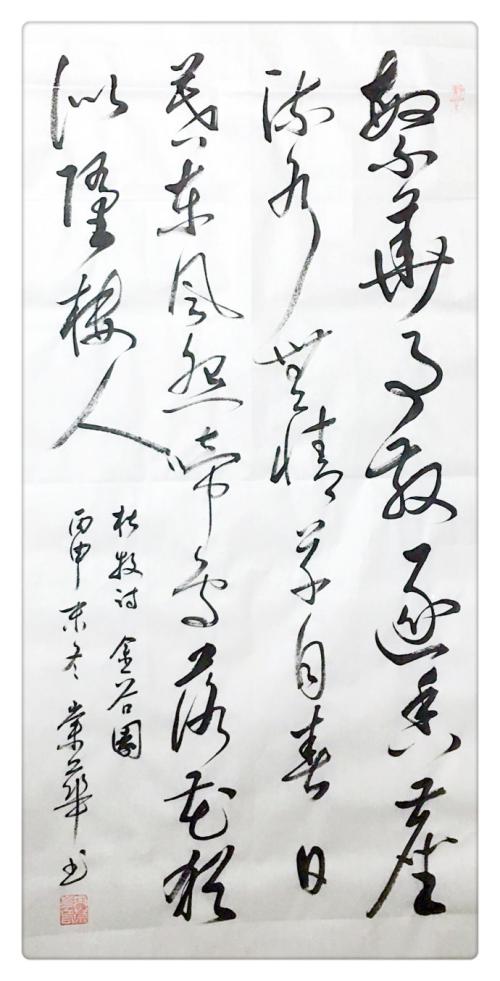 繁華事散逐香塵
流水無情草自春日
暮東風怨啼鳥落花猶
似墜樓人
杜牧诗 金谷園
丙申末冬 業華书